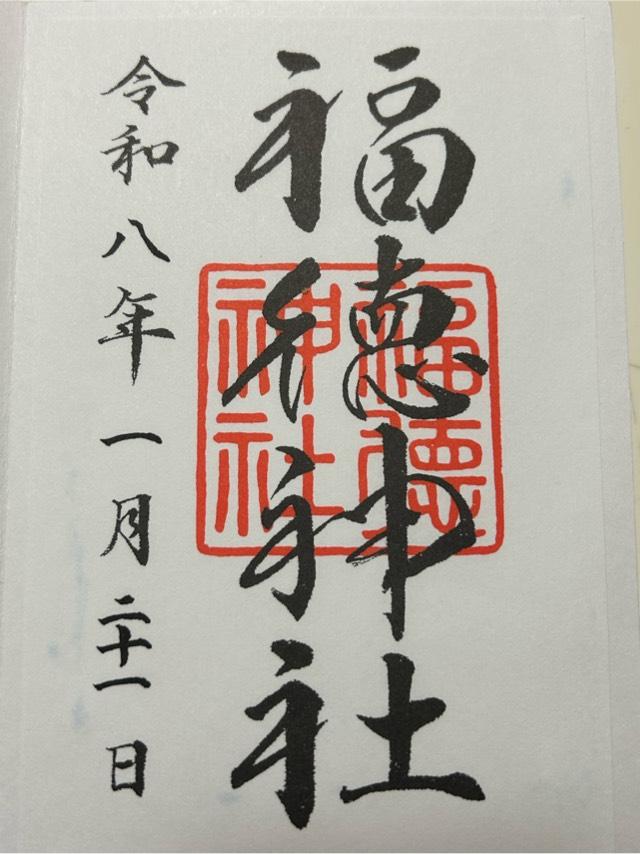 福徳神社
福徳神社
令和八年一月二十一日